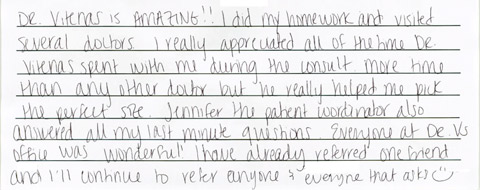 DR. Vitenas is AMAZING!! I did my homework and visited
several doctors. I really appreciated all of the time Dr.
Vitenas spent with me during the consult. more time
than any other doctor but he really helped me pick
the perfect size. Jennifer the patient coordinator also
answered all my last minute quistions. Everyone at Dr. V's
office was wonderful! I have already referred one friend
and I'll continue to refer anyone & everyone that asks ☺